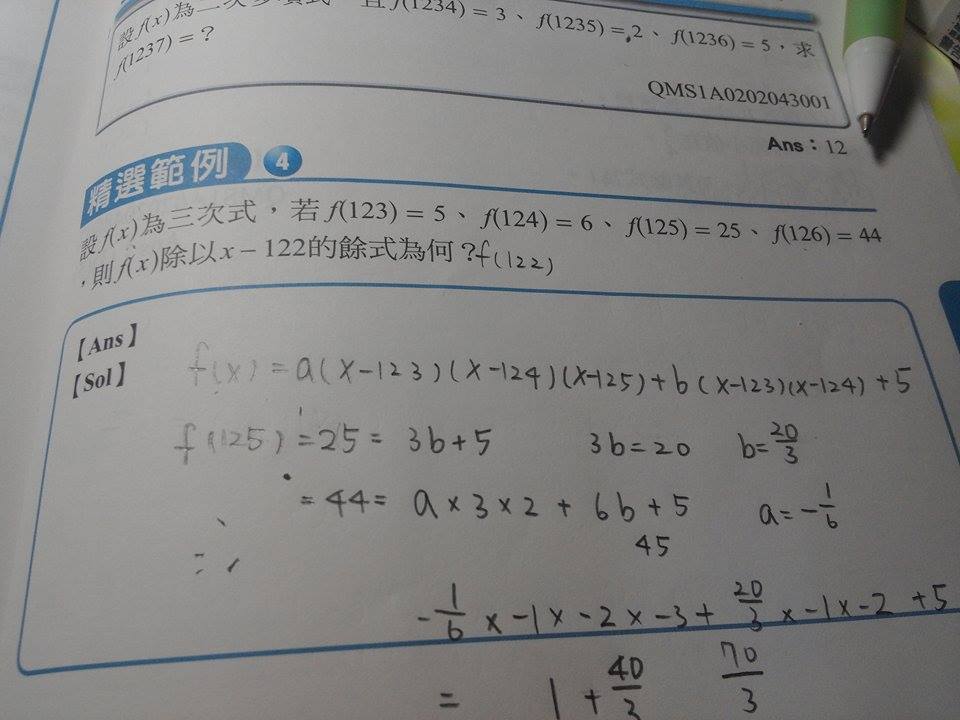 設f(x)為二次多項式,且f(1234) = 3、f(1235) = 2、f(1236) = 5,求
f(1237) = ?
QMS1A0202043001
Ans:12
精選範例 4
設f(x)為三次式,若f(123) = 5、f(124) = 6、f(125) = 25、f(126) = 44
,則f(x)除以x − 122的餘式為何?f(122)
【Ans】
【Sol】 f(x) = a(x-123)(x-124)(x-125)+b(x-123)(x-124)+5
f(125) = 25 = 3b+5 3b=20 b=20/3
= 44 = a×3×2 + 6b+5 a=-1/6
45
-1/6 x -1x -2 x -3 + 20/3 x -1x -2 +5
= 1 + 40/3 70/3